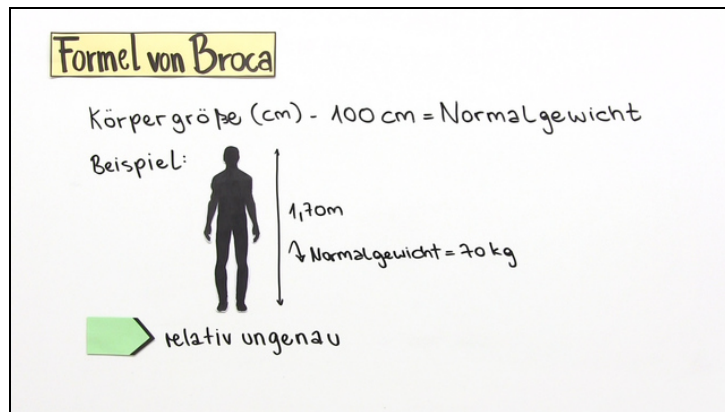 Formel von Broca
Körpergröße (cm) - 100 cm = Normalgewicht
Beispiel:
1,70m
↳ Normalgewicht = 70 kg
relativ ungenau